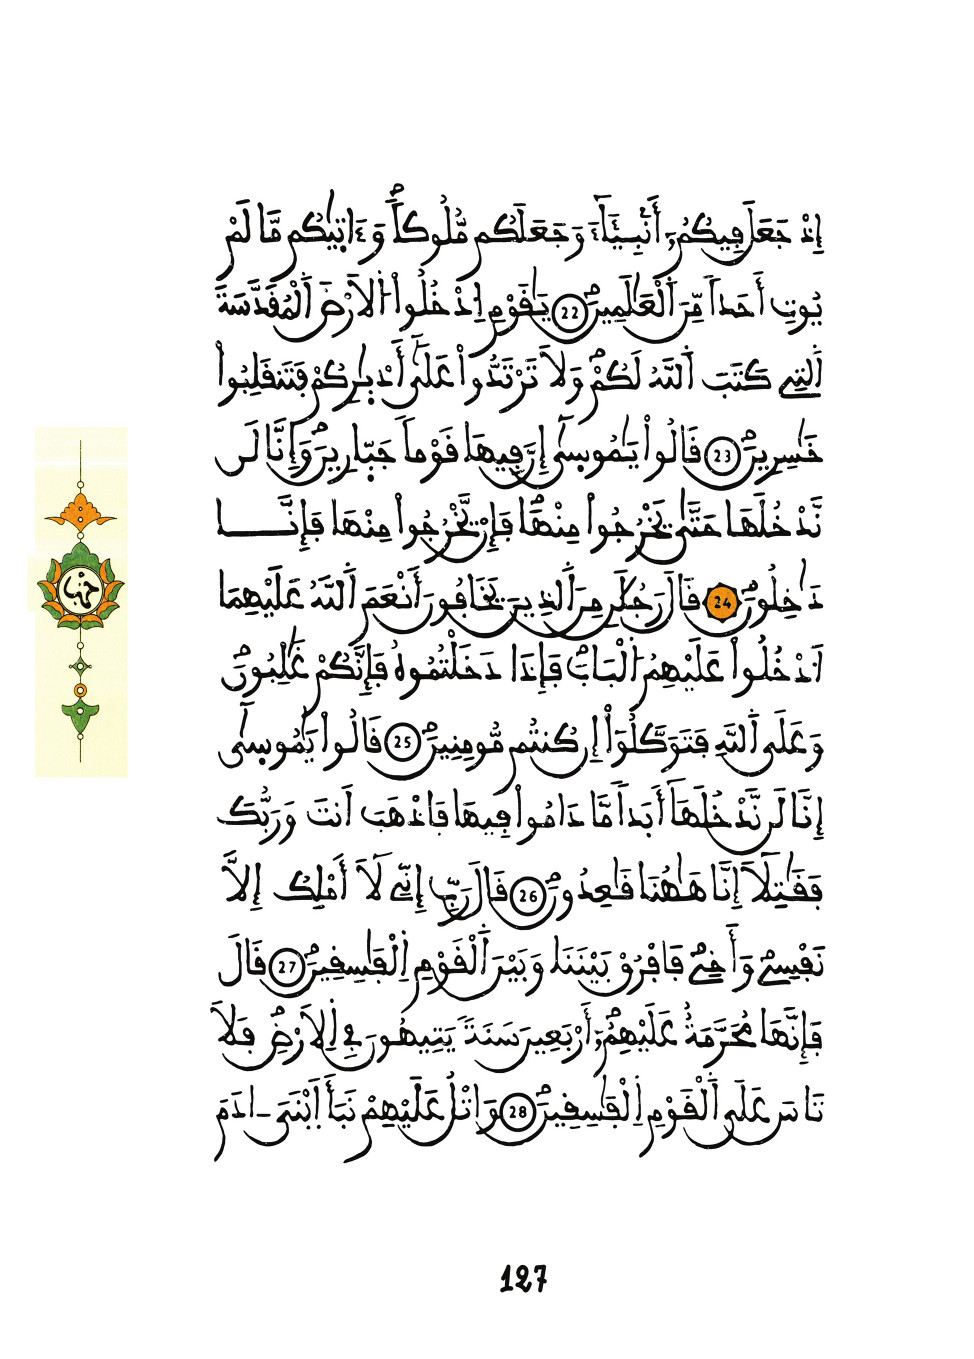 إِذْ جَعَلَ فِيكُمُۥٓ أَنۢبِـيَآءَ وَجَعَلَكُم مُّلُوكاٗ وَءَاتٜيٰكُم مَّا لَمْ
يُوتِ أَحَداٗ مِّنَ اَ۬لْعَٰلَمِينَۖ 22 يَٰقَوْمِ اِ۟دْخُلُواْ اُ۬لَارْضَ اَ۬لْمُقَدَّسَةَ
اَ۬لتِے كَتَبَ اَ۬للَّهُ لَكُمْۖ وَلَا تَرْتَدُّواْ عَلَيٰٓ أَدْبٰ۪رِكُمْ فَتَنقَلِبُواْ
خَٰسِرِينَۖ 23 قَالُواْ يَٰمُوس۪يٰٓ إِنَّ فِيهَا قَوْماٗ جَبّ۪ارِينَۖ وَإِنَّا لَن
نَّدْخُلَهَا حَتَّيٰ يَخْرُجُواْ مِنْهَاۖ فَإِنْ يَّخْرُجُواْ مِنْهَا فَإِنَّا
دَٰخِلُونَۖ 24 قَالَ رَجُلَٰنِ مِنَ اَ۬لذِينَ يَخَافُونَ أَنْعَمَ اَ۬للَّهُ عَلَيْهِمَا
اَ۟دْخُلُواْ عَلَيْهِمُ اُ۬لْبَابَۖ فَإِذَا دَخَلْتُمُوهُ فَإِنَّكُمْ غَٰلِبُونَۖ
وَعَلَي اَ۬للَّهِ فَتَوَكَّلُوٓاْ إِن كُنتُم مُّومِنِينَۖ 25 قَالُواْ يَٰمُوس۪يٰٓ
إِنَّا لَن نَّدْخُلَهَآ أَبَداٗ مَّا دَامُواْ فِيهَا فَاذْهَبَ اَنتَ وَرَبُّكَ
فَقَٰتِلَآ إِنَّا هَٰهُنَا قَٰعِدُونَۖ 26 قَالَ رَبِّ إِنِّے لَآ أَمْلِكُ إِلَّا
نَفْسِے وَأَخِےۖ فَافْرُقْ بَيْنَنَا وَبَيْنَ اَ۬لْقَوْمِ اِ۬لْفَٰسِقِينَۖ 27 قَالَ
فَإِنَّهَا مُحَرَّمَةٌ عَلَيْهِمُۥٓ أَرْبَعِينَ سَنَةٗ يَتِيهُونَ فِے اِ۬لَارْضِۖ فَلَا
تَاسَ عَلَي اَ۬لْقَوْمِ اِ۬لْفَٰسِقِينَۖ 28 وَاتْلُ عَلَيْهِمْ نَبَأَ اَ۪بْنَيَ ءَادَمَ
حزب
127